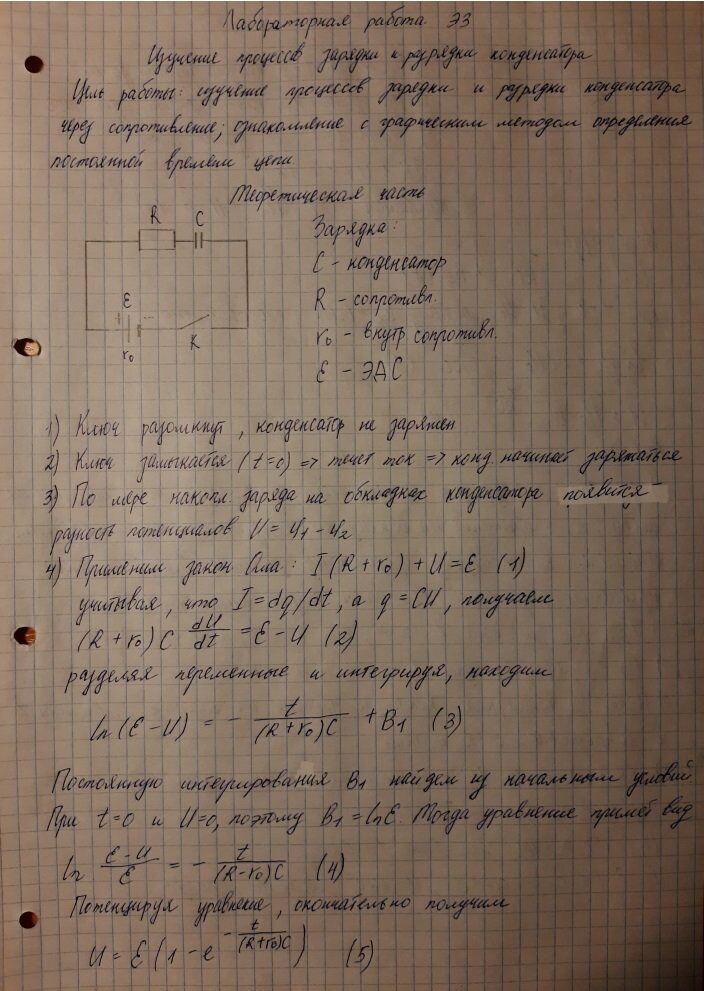 Лабораторная работа Э3
Изучение процессов зарядки и разрядки конденсатора
Цель работы: изучение процессов зарядки и разрядки конденсатора
через сопротивление; ознакомление с графическим методом определения
постоянной времени цепи.
Теоретическая часть
R C
ε
r₀ K
Зарядка:
C - конденсатор
R - сопротивл.
r₀ - внутр сопротивл.
ε - ЭДС
1) Ключ разомкнут, конденсатор не заряжен
2) Ключ замыкается (t=0) => течет ток => конд. начинает заряжаться
3) По мере накопл. заряда на обкладках конденсатора появится
разность потенциалов U = φ₁ - φ₂
4) Применим закон Ома: I(R+r₀)+U=ε (1)
учитывая, что I=dq/dt, а q=CU, получаем
(R+r₀)C dU/dt = ε-U (2)
разделяя переменные и интегрируя, находим
ln(ε-U) = - t/((R+r₀)C) + B₁ (3)
Постоянную интегрирования B₁ найдем из начальным условий.
При t=0 и U=0, поэтому B₁=lnε. Тогда уравнение примет вид
ln (ε-U)/ε = - t/((R-r₀)C) (4)
Потенцируя уравнение, окончательно получим
U = ε(1-e^(-t/((R+r₀)C))) (5)